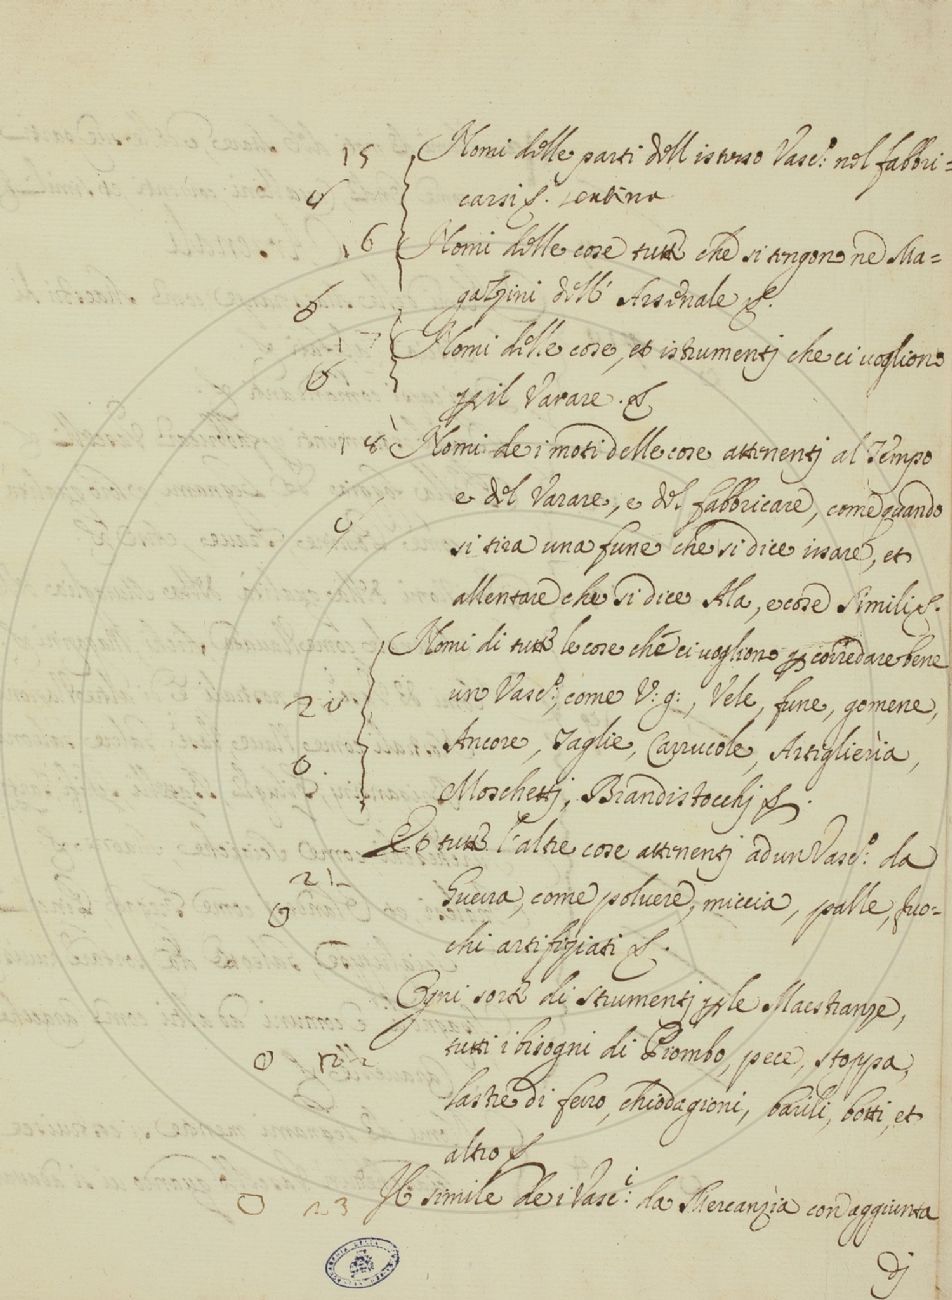 15 Nomi delle parti dell istesso Vasc.º nel fabbri=
carsi &. sentina
16 Nomi delle cose tutte che si tengono ne Ma=
gazzini dell' Arsenale &.
17 Nomi delle cose, et istrumentj che ci uogliono
per il Varare. &
18 Nomi de i moti delle cose attenentj al Tempo
e del Varare, e del fabbricare, come quando
si tira una fune che si dice issare, et
allentare che si dice Ala, e cose simili &.
Nomi di tutte le cose che ci uogliono per corredare bene
20 un Vasc.º, come V: g:, Vele, fune, gomene,
Ancore, Taglie, Carrucole, Artiglieria,
Moschettj, Brandistocchj &.
Et tutte l'altre cose attenentj ad un Vasc.º da
21 Guerra, come poluere, miccia, palle, fuo=
chi artifiziati &.
Ogni sorte di strumentj per le Maestranze,
22 tutti i bisogni di Piombo, pece, stoppa,
lastre di ferro, chiodagioni, barili, botti, et
altro &
23 Il simile de i Vasc.i da Mercanzia con aggiunta
dj